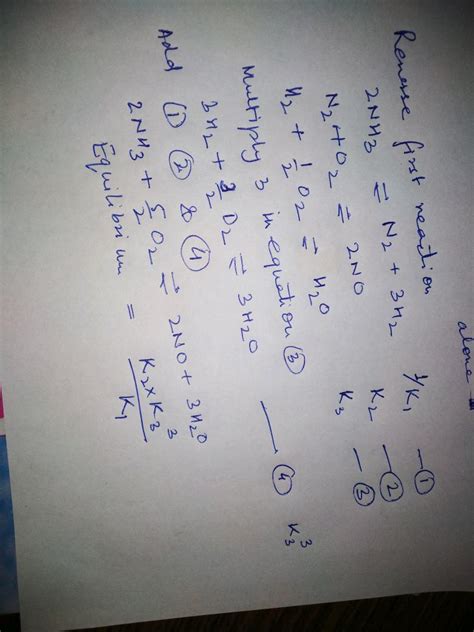 alone
Reverse first reaction
2NH3 ⇌ N2 + 3H2 1/K1 — ①
N2+O2 ⇌ 2NO K2 — ②
H2 + 1/2 O2 ⇌ H2O K3 — ③
Multiply 3 in equation ③
3H2 + 3/2 O2 ⇌ 3H2O — ④ K3^3
Add ① ② & ④
2NH3 + 5/2 O2 ⇌ 2NO + 3H2O
Equilibrium = K2×K3^3 / K1